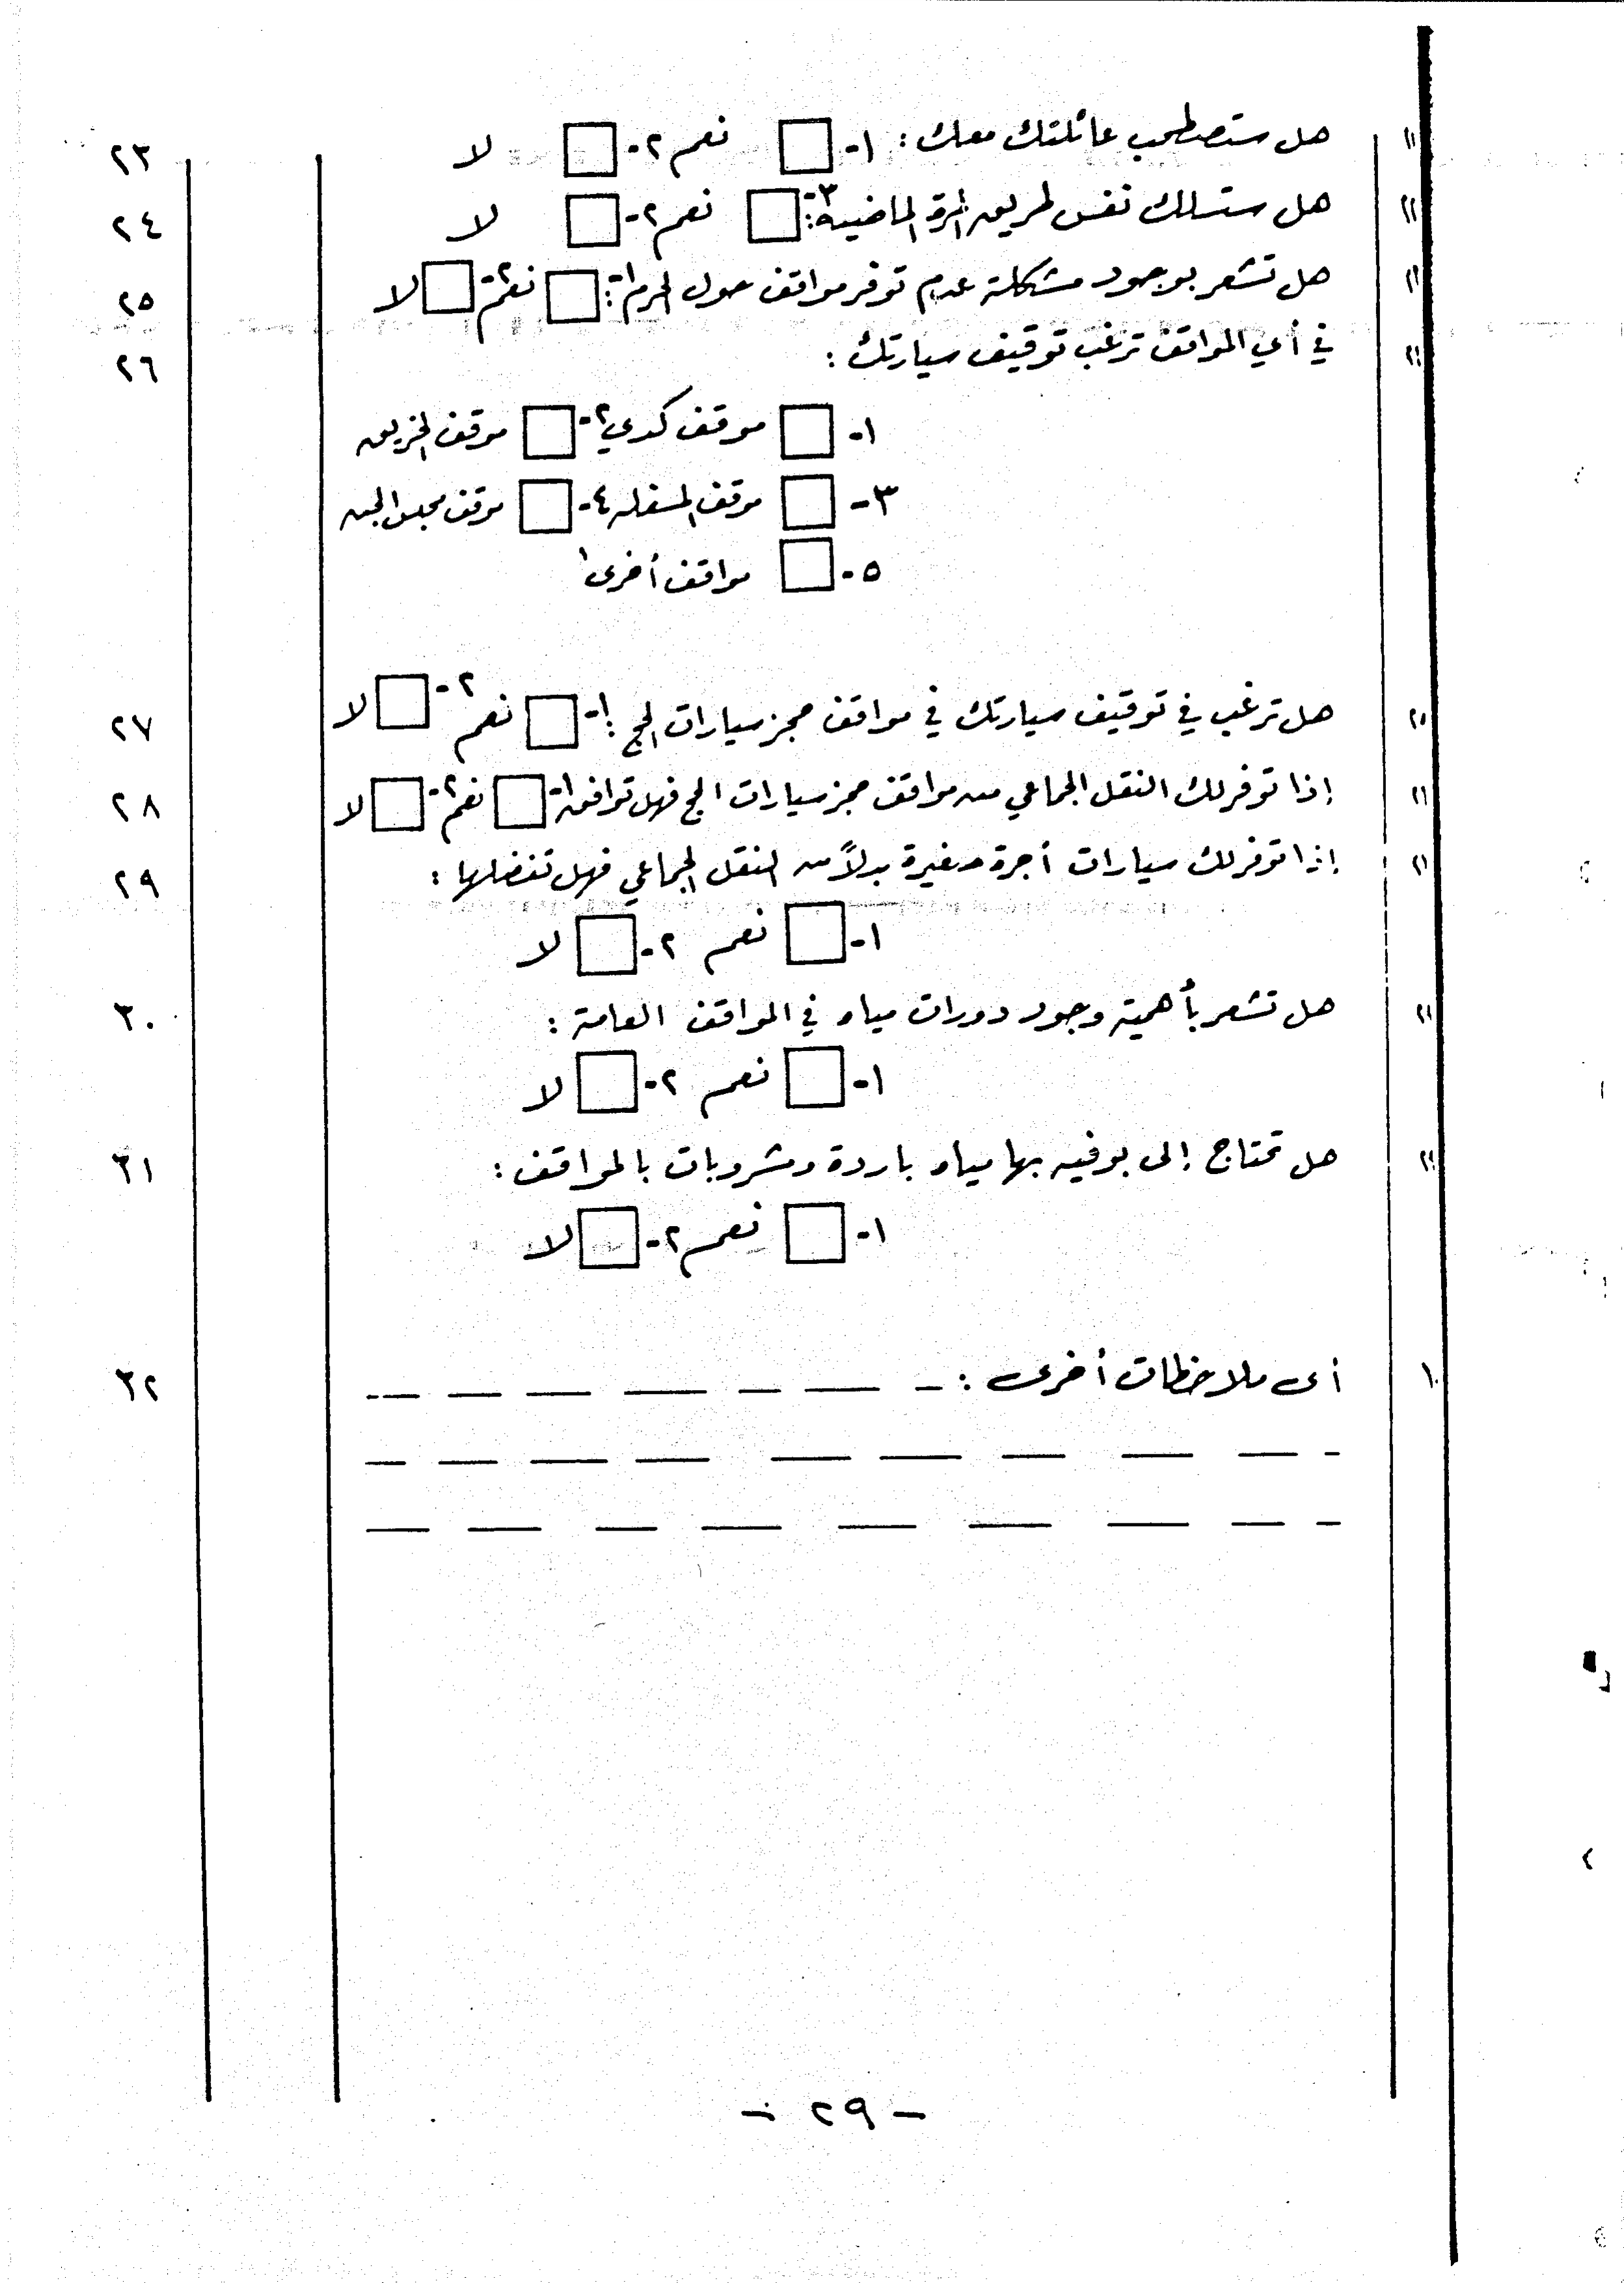 ٢١ هل ستصطحب عائلتك معك : ١- □ نعم ٢- □ لا ٢٣
٢١ هل ستسلك نفس طريق المرة الماضية : □ نعم ٢- □ لا ٢٤
٢١ هل تشعر بوجود مشكلة عدم توفر مواقف حول الحرم : ١- □ نعم ٢- □ لا ٢٥
٢١ في أي المواقف ترغب توقيف سيارتك : ٢٦
١- □ موقف كدي ٢- □ موقف الخريق
٣- □ موقف المسفله ٤- □ موقف مجلس الجن
٥- □ مواقف أخرى
٢١ هل ترغب في توقيف سيارتك في مواقف حجز سيارات الحج : ١- □ نعم ٢- □ لا ٢٧
٢١ إذا توفر لك النقل الجماعي من مواقف حجز سيارات الحج فهل توافق ١- □ نعم ٢- □ لا ٢٨
٢١ إذا توفر لك سيارات أجرة صغيرة بدلاً من النقل الجماعي فهل تفضلها : ٢٩
١- □ نعم ٢- □ لا
٢١ هل تشعر بأهمية وجود دورات مياه في المواقف العامة : ٣٠
١- □ نعم ٢- □ لا
٢١ هل تحتاج إلى بوفيه بها مياه باردة ومشروبات بالمواقف : ٣١
١- □ نعم ٢- □ لا
١٠ أى ملاحظات أخرى : ٣٢
- ٢٩ -